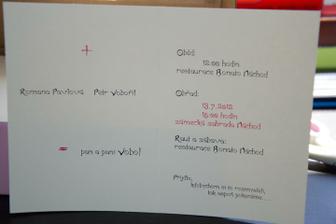 +
Romana Pavlová Petr Vobořil
= pan a paní Vobo!
Oběd:
12.00 hodin
restaurace Bonato Náchod
Obřad:
13.7.2012
15.00 hodin
zámecká zahrada Náchod
Raut a zábava:
restaurace Bonato Náchod
Přijďte,